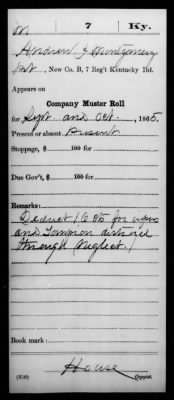 M 7 Ky.
Andrew J Montgomery
Pvt, New Co. B, 7 Reg't Kentucky Inf.
Appears on
Company Muster Roll
for Sept. and Oct., 1865.
Present or absent Present
Stoppage, $ 100 for
Due Gov't, $ 100 for
Remarks:
Deduct 1.65 for
and destroied
through neglect.
Book mark:
House
(358) Copyist.